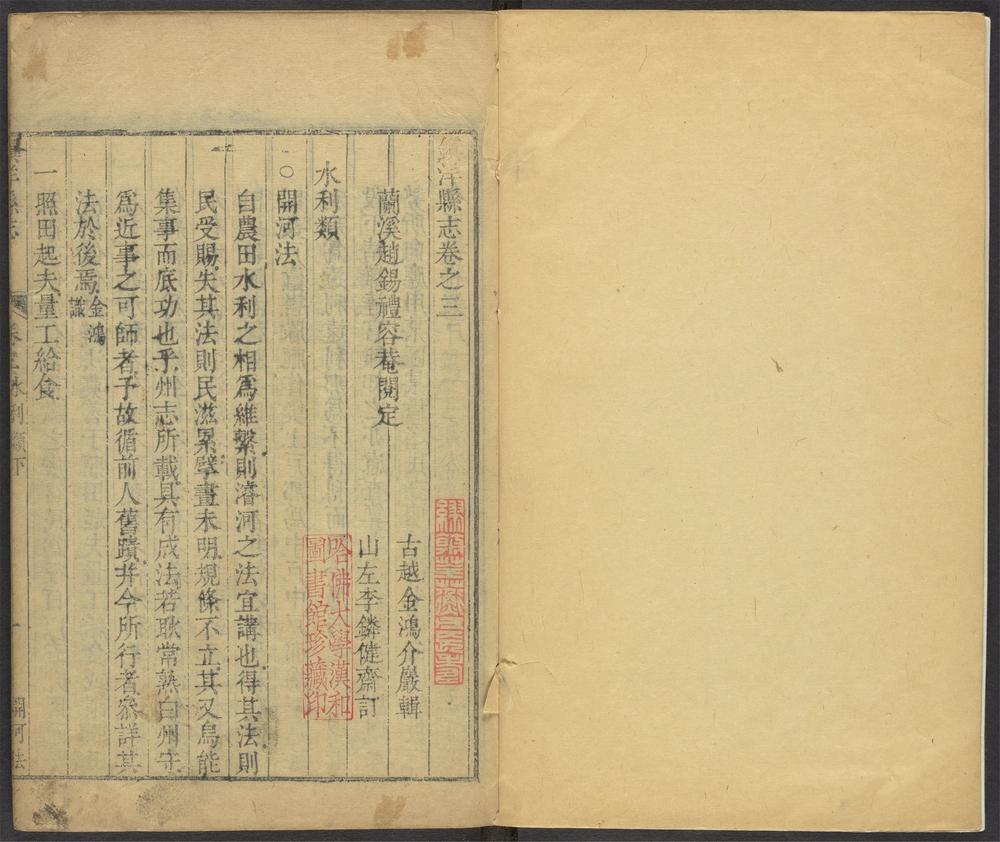 洋縣志卷之三
古越金鴻介嚴輯
蘭溪趙錫禮容菴閱定
山左李鏻健齋訂
哈佛大學漢和圖書館珍藏印
水利類
○開河法
自農田水利之相爲維繫則濬河之法宜講也得其法則
民受賜失其法則民滋累擘畫未明規條不立其又烏能
集事而底功也乎州志所載具有成法若耿常熟白州守
爲近事之可師者予故循前人舊蹟并今所行者參詳其
法於後焉金鴻識
一照田起夫量工給食
卷之三水利類下
一
開河法